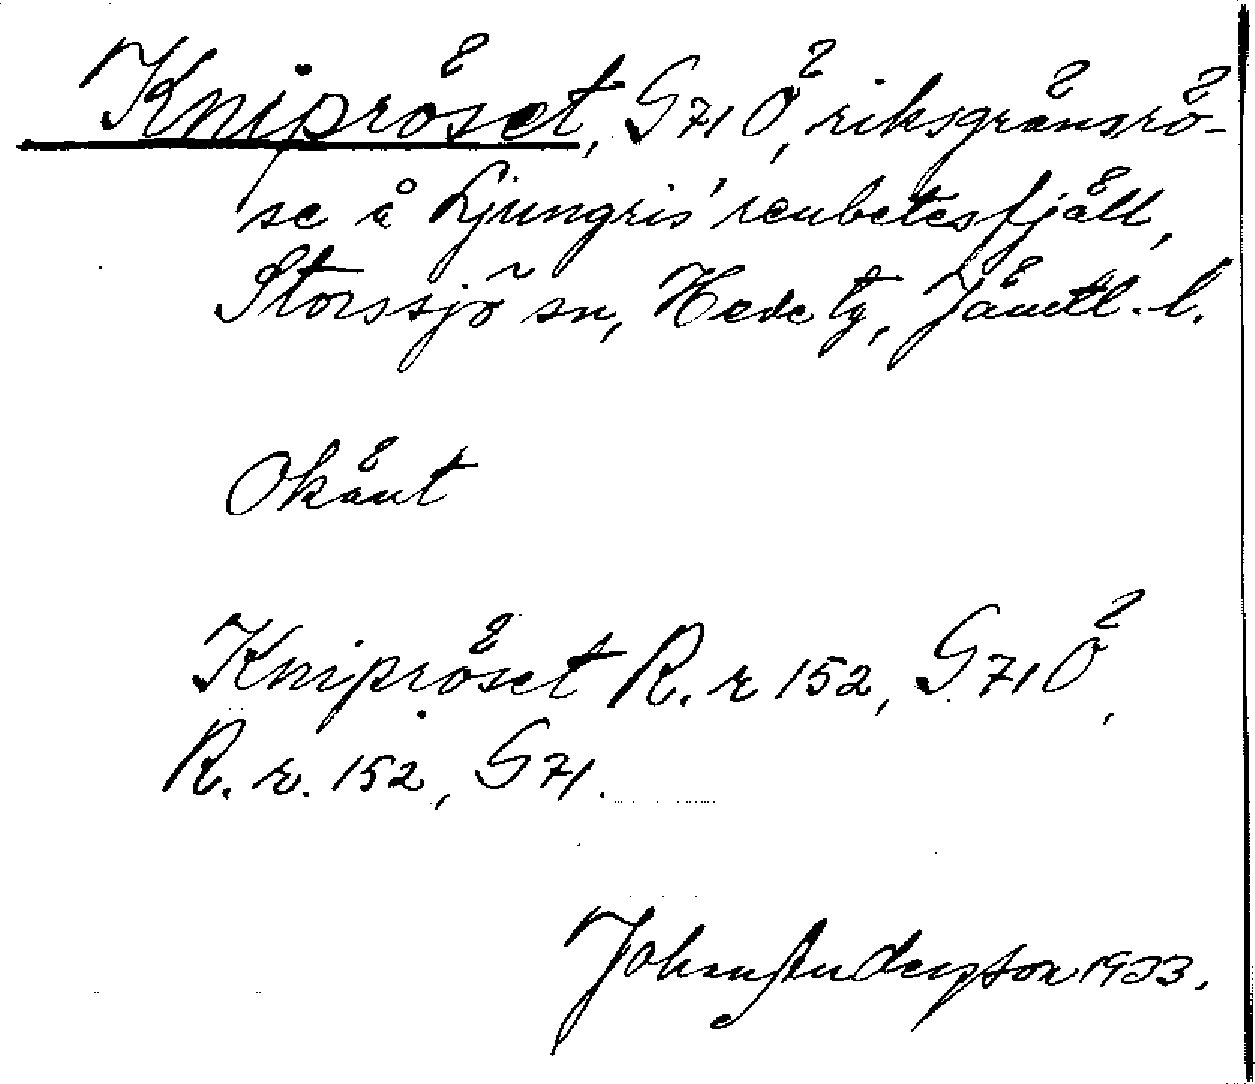 Knipröset, G71Ö, riksgränsrö-
se å Ljungris' renbetesfjäll,
Storssjö sn, Hede tg, Jämtl. l.
Okänt
Knipröset R. r 152, G71Ö,
R. r. 152, G71.
Johan Andersson 1933.